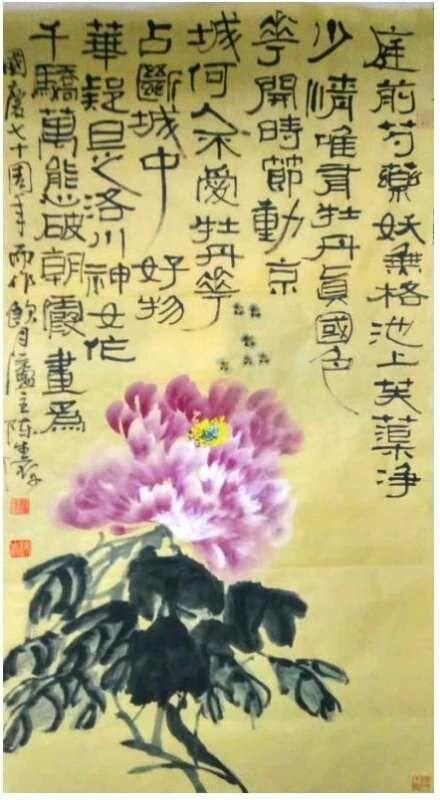 庭前芍藥妖無格池上芙蕖淨
少情唯有牡丹眞國色
華開時節動京
城何人不愛牡丹華
占斷城中好物
華疑是洛川神女作
千驕萬態破朝霞畫為
國慶七十周年而作飲月廬主陈